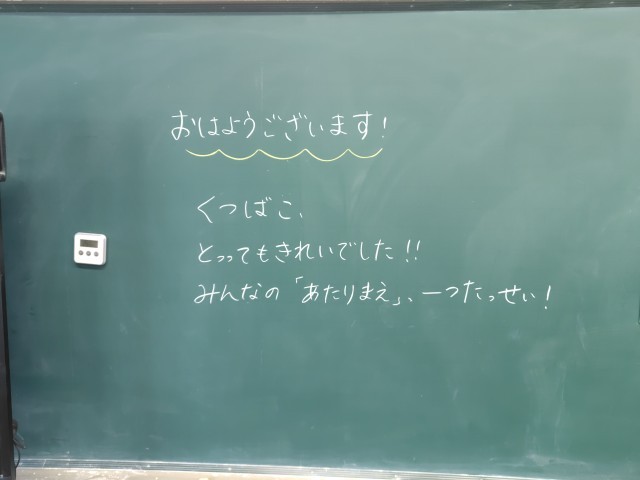 おはようございます!
くつばこ、
とってもきれいでした!!
みんなの「あたりまえ」、一つたっせい!